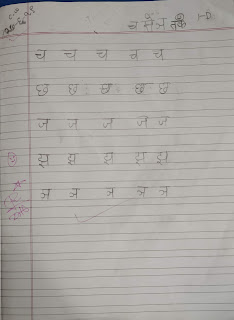 च से ञ तक 1-D
च च च च च
छ छ छ छ छ
ज ज ज ज ज
झ झ झ झ झ
ञ ञ ञ ञ ञ